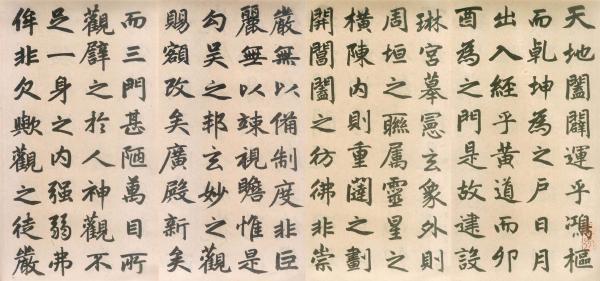 天地闔闢運乎鴻樞
而乾坤為之戶日月
出入經乎黃道而卯
酉為之門是故建設
琳宮摹憲玄象外則
周垣之聯属靈星之
橫陳内則重闥之劃
開閶闔之彷彿非崇
嚴無以備制度非巨
麗無以竦視瞻惟是
勾吳之邦玄妙之觀
賜額改矣廣殿新矣
而三門甚陋萬目所
觀譬之於人神觀不
足一身之内强弱弗
侔非欠歟觀之徒嚴